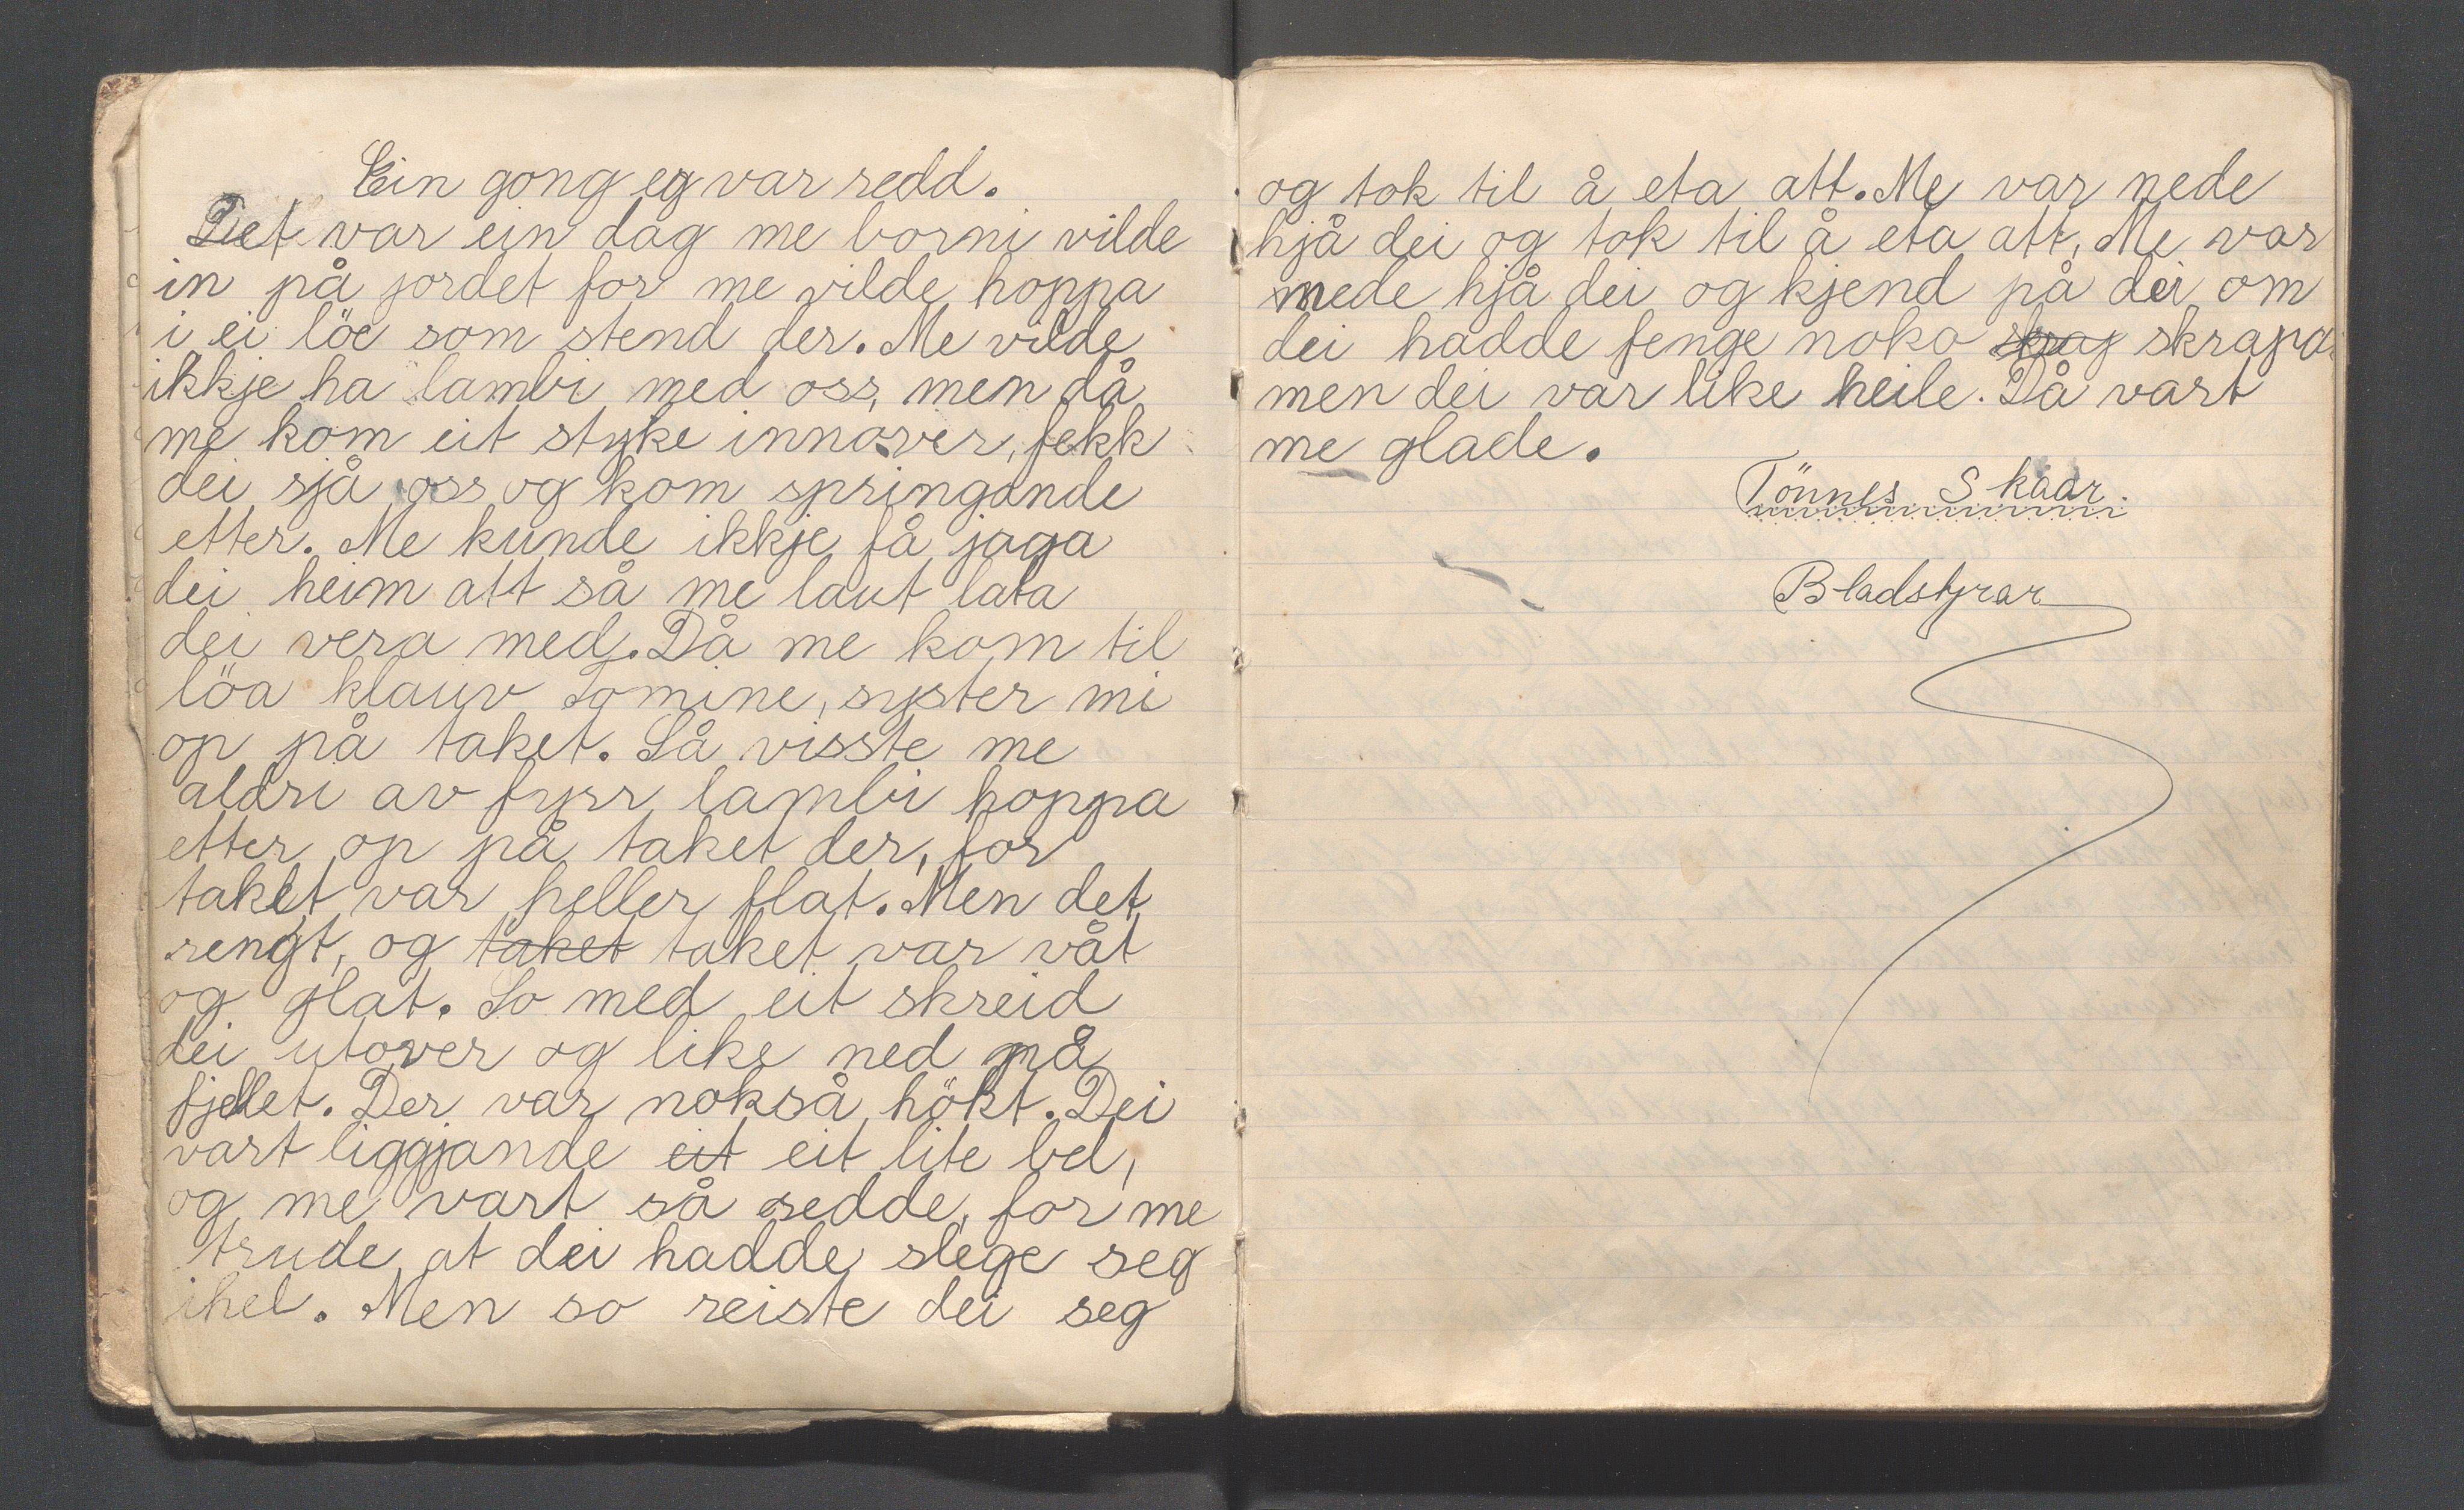 Ein gong eg var redd.
Det var ein dag me borni vilde
in på jordet for me vilde hoppa
i ei löe som stend der. Me vilde
ikkje ha lambi med oss, men då
me kom eit styke innover, fekk
dei sjå oss og kom springande
etter. Me kunde ikkje få jaga
dei heim att så me laut lata
dei vera med. Då me kom til
löa klauv Tomine, syster mi
op på taket. Så visste me
aldri av fyrr lambi hoppa
etter op på taket der, for
taket var heller flat. Men det
rengt, og taket taket var våt
og glat. So med eit skreid
dei utover og like ned på
fjellet. Der var nokså hökt. Dei
vart liggjande eit eit lite bel,
og me vart så redde, for me
trude at dei hadde slege seg
ihel. Men so reiste dei seg
og tok til å eta att. Me var nede
hjå dei og tok til å eta att, Me var
nede hjå dei og kjend på dei om
dei hadde fenge noko skrap skrapa
men dei var like heile. Då vart
me glade.
Tönnes Skaar.
Bladstyrar